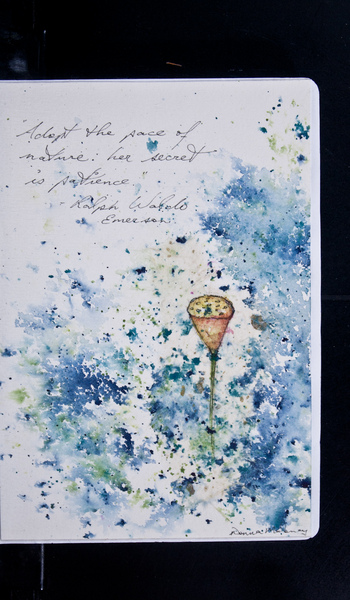 "Adopt the pace of
nature: her secret
is patience."
- Ralph Waldo
Emerson.
Donna